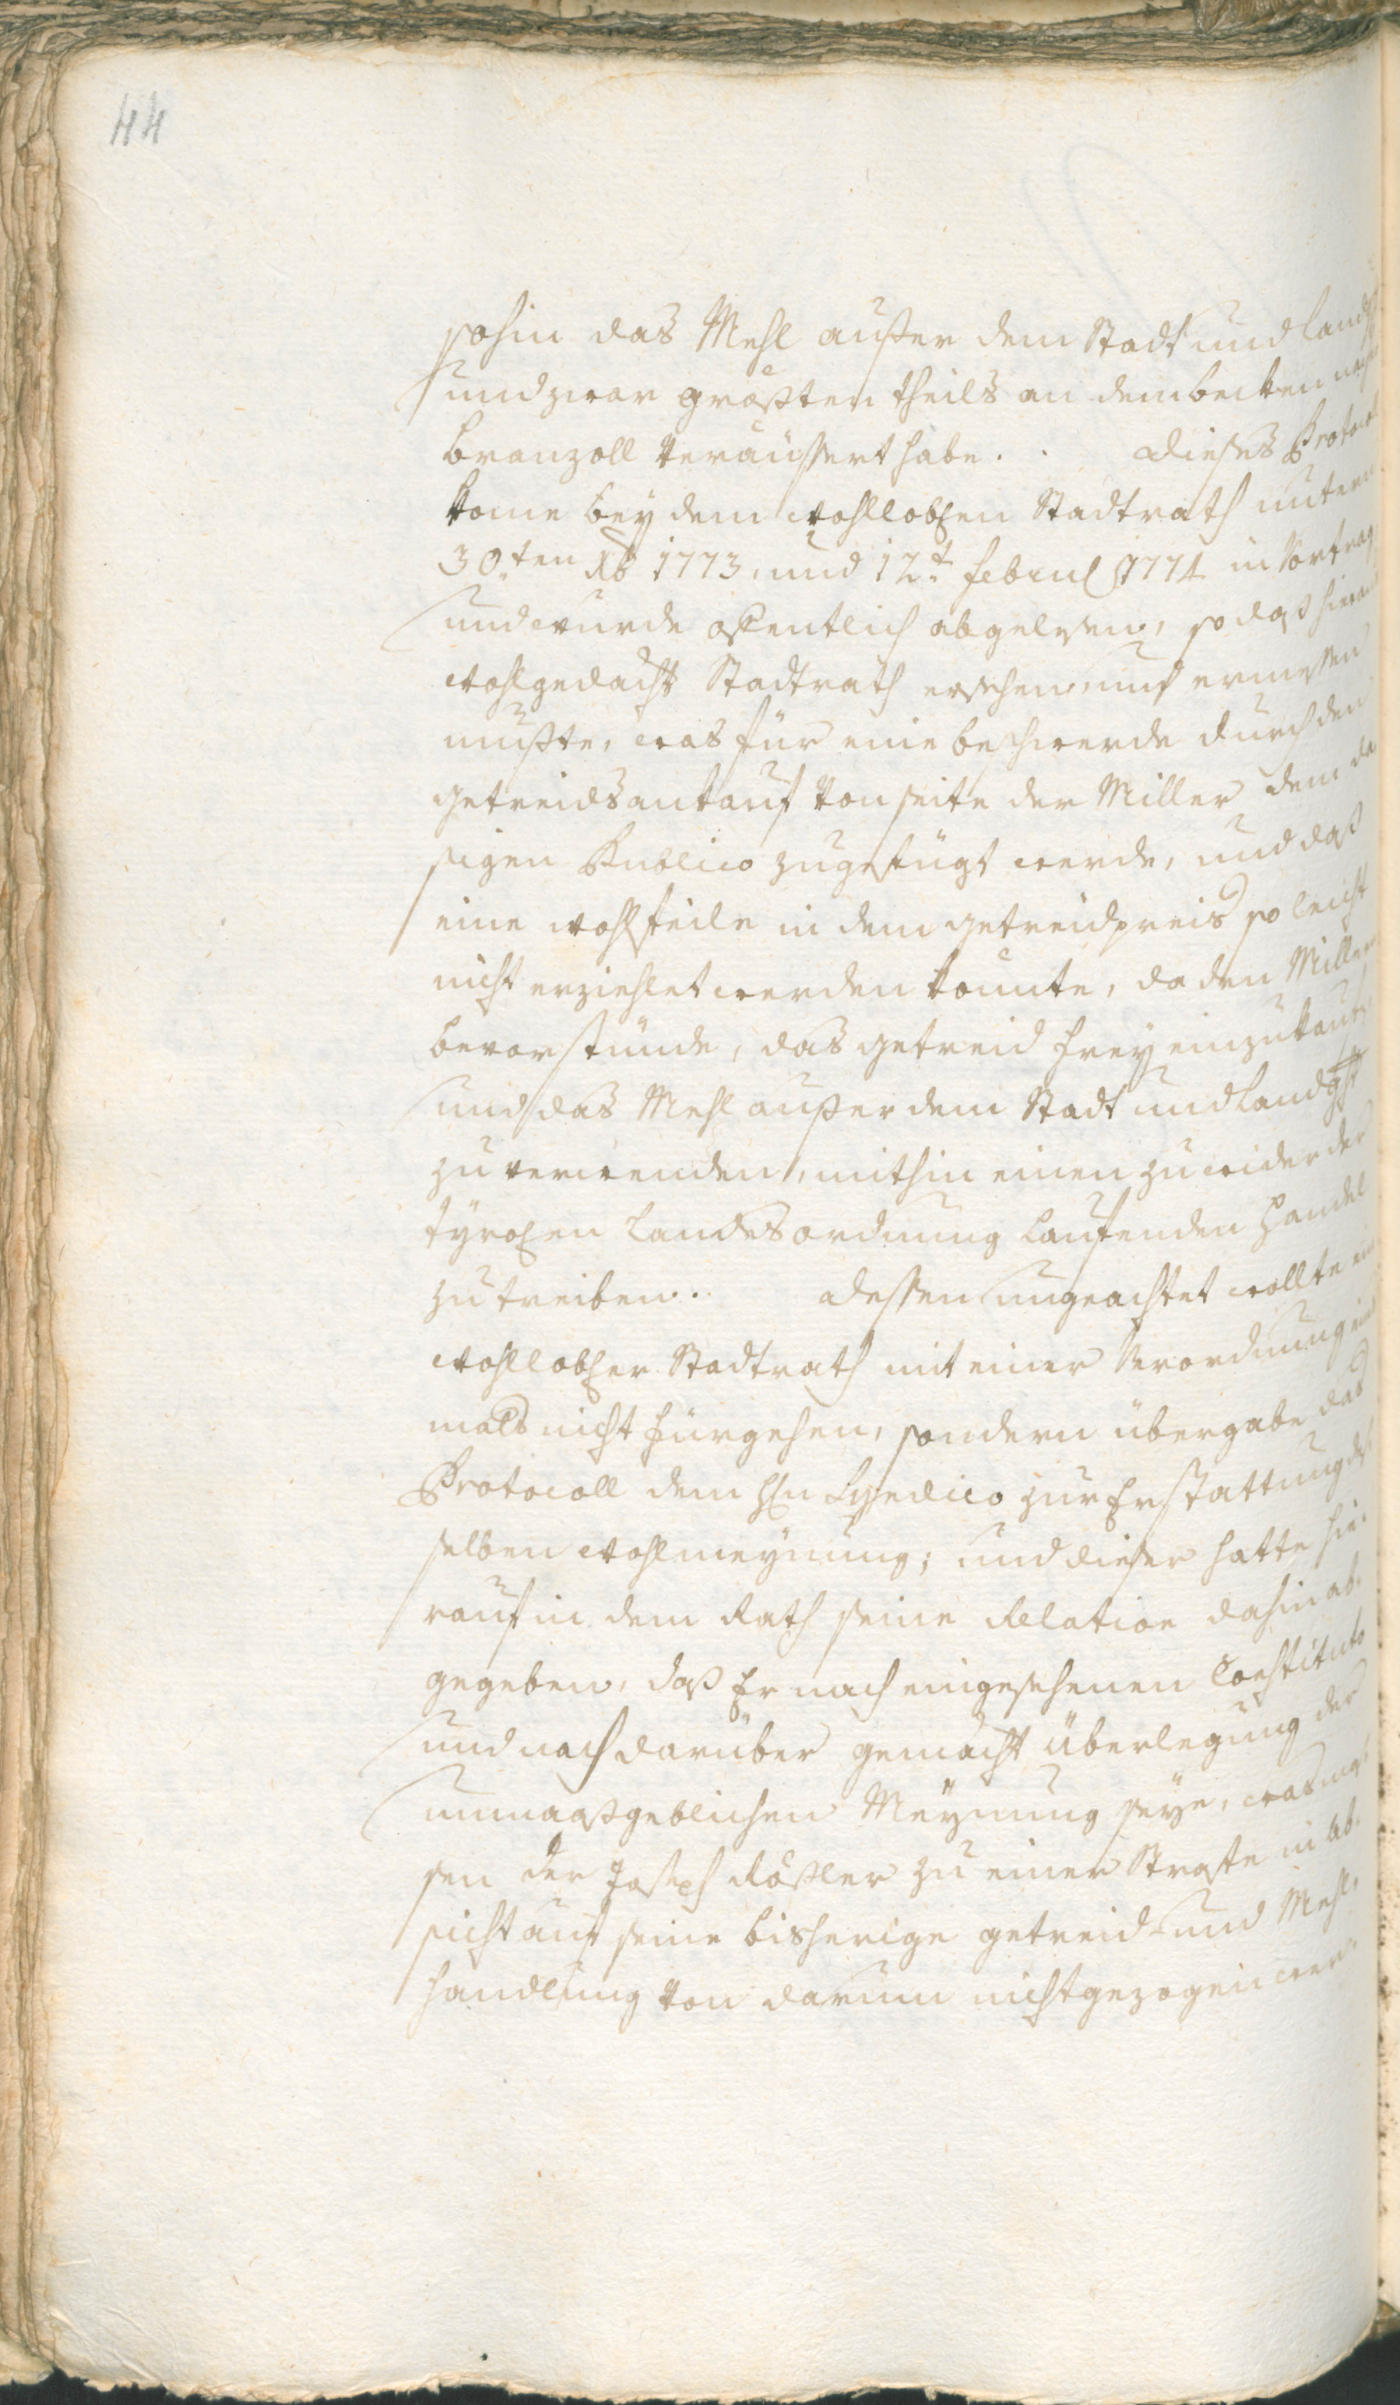 44
sohin das Mehl ausser dem Stadt und Land
und zwar grösten theils an dem becken nach
Branzoll veräussert habe. . dieses Protocol
kome bey dem wohllobl:en Stadtrath untern
30ten Xb 1773, und 12t: Februl 1774 in Vortrag
und wurde offentlich abgelesen, so daß hieraus
wohlgedacht Stadtrath ersehen, und ermessen
mußte, was für eine beschwerde durch den
getreidsankauf von seite der Miller dem da
sigen Publico zugefügt werde, und daß
eine wohlfeile in dem getreidpreis so leicht
nicht erziehlet werden konnte, da den Millern
bevorstünde, das getreid frey einzukaufen
und das Mehl ausser dem Stadt und Landght
zu verwenden, mithin einen zuwider der
tyrol:en Landesordnung laufenden Handel
zu treiben. dessen ungeachtet wollte ein
wohllobl:er Stadtrath mit einer Verordnung
mals nicht fürgehen, sondern übergabe das
Protocoll dem H:n Syndico zur Erstattung des
selben wohlmeynung; und dieser hatte hie-
rauf in dem Rath seine Relation dahin ab-
gegeben, daß Er nach eingesehenen Constituto
und nach darüber gemacht überlegung der
unmaaßgeblichen Meynung seye, was mas
sen der Joseph Rößler zu einer Strafe in Ab-
sicht auf seine bisherige getreid- und Mehl-
handlung von darum nicht gezogen wer-